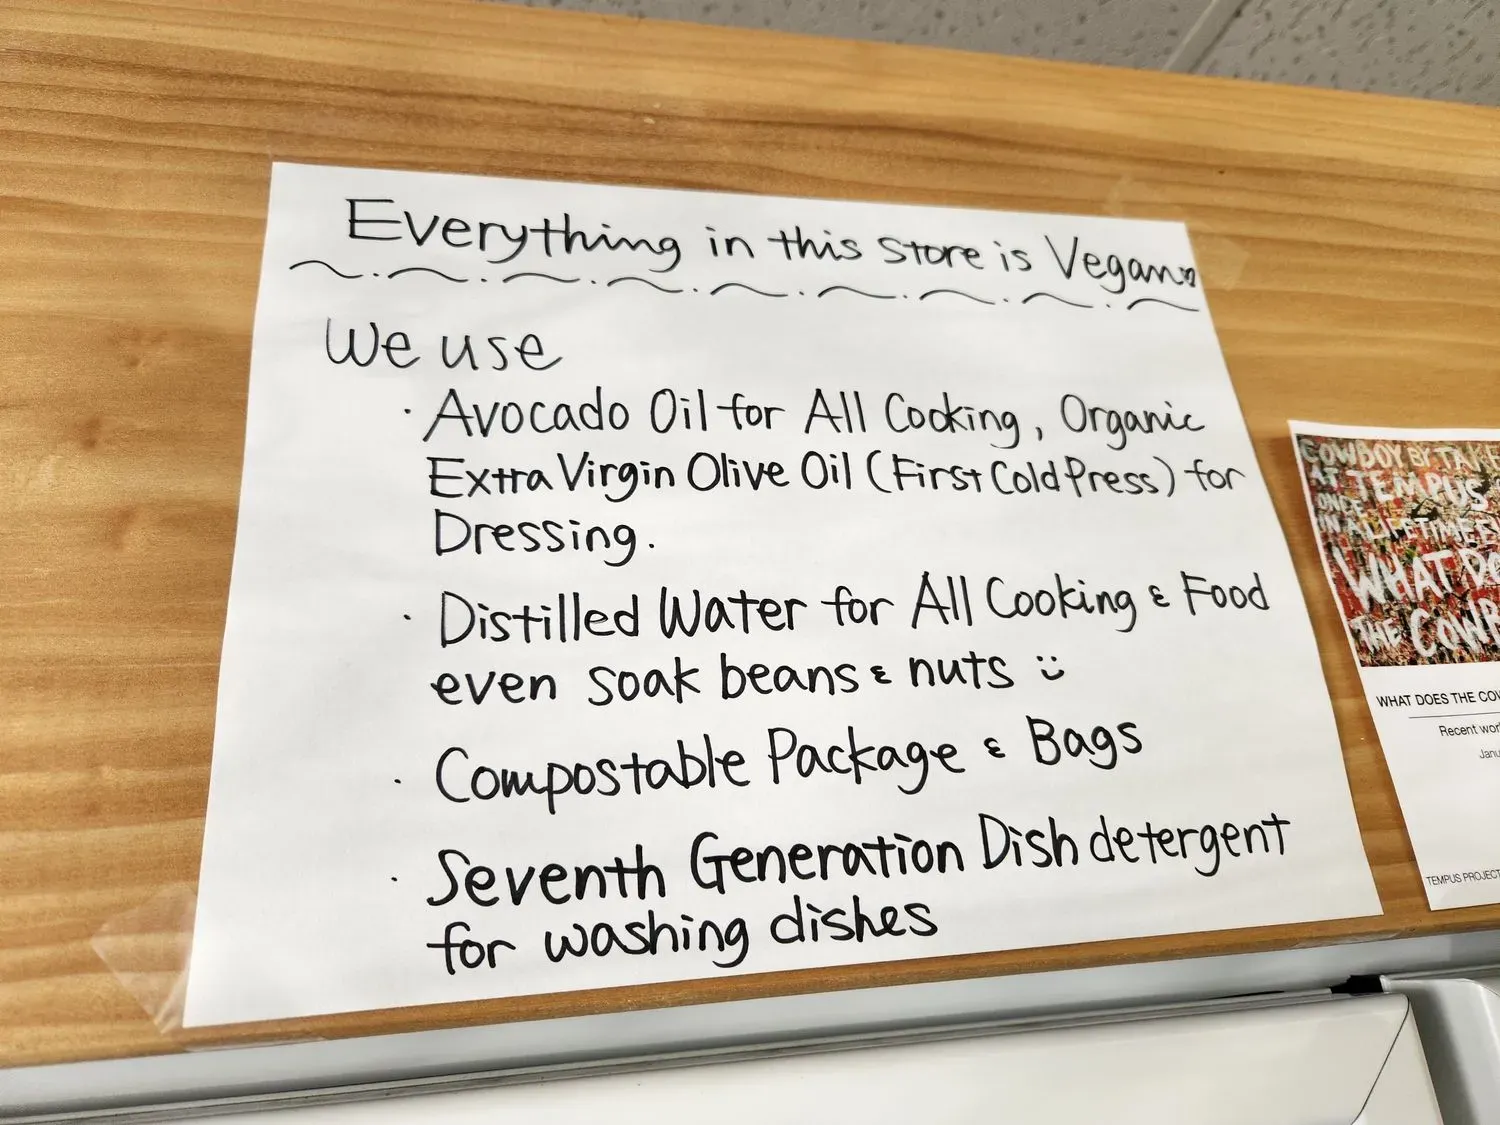 Everything in this Store is Vegan♡
We use
· Avocado Oil for All Cooking, Organic
Extra Virgin Olive Oil (First Cold Press) for
Dressing.
· Distilled Water for All Cooking & Food
even soak beans & nuts ü
· Compostable Package & Bags
· Seventh Generation Dish detergent
for washing dishes
COWBOY BY TAKE
AT TEMPUS
ONCE
IN A LIFETIME
WHAT DO
THE COW
WHAT DOES THE COW
Recent wor
Janu
TEMPUS PROJECT